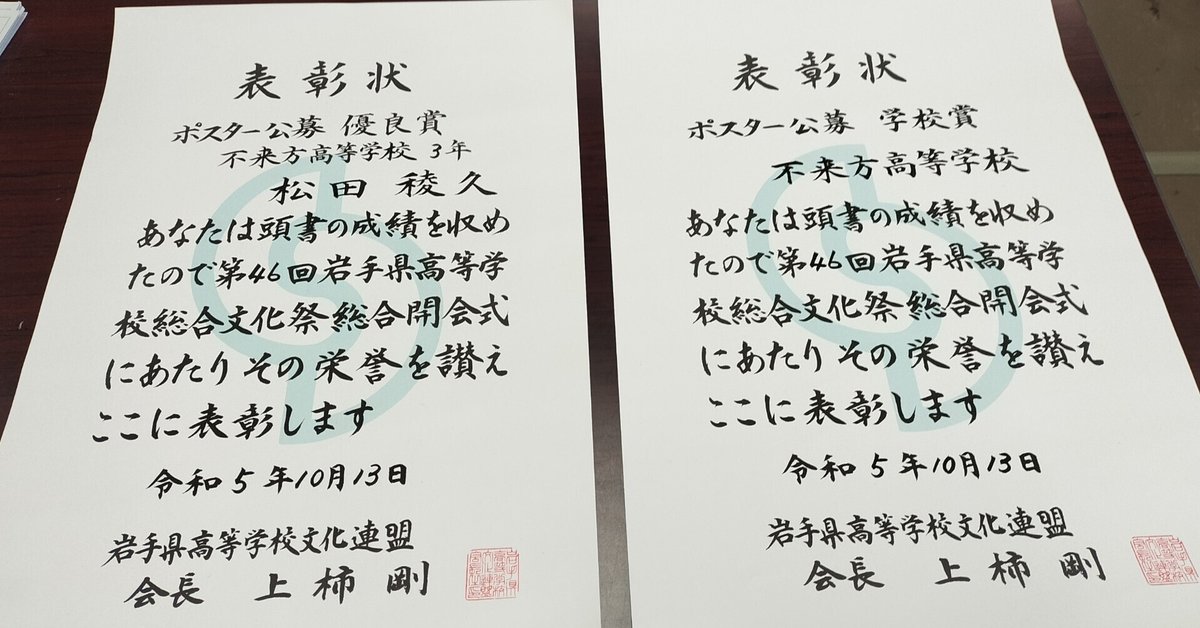 表彰状
ポスター公募 優良賞
不来方高等学校 3年
松田 稜久
あなたは頭書の成績を収め
たので第46回岩手県高等学
校総合文化祭総合開会式
にあたりその栄誉を讃え
ここに表彰します
令和5年10月13日
岩手県高等学校文化連盟
会長 上柿 剛
表彰状
ポスター公募 学校賞
不来方高等学校
あなたは頭書の成績を収め
たので第46回岩手県高等学
校総合文化祭総合開会式
にあたりその栄誉を讃え
ここに表彰します
令和5年10月13日
岩手県高等学校文化連盟
会長 上柿 剛